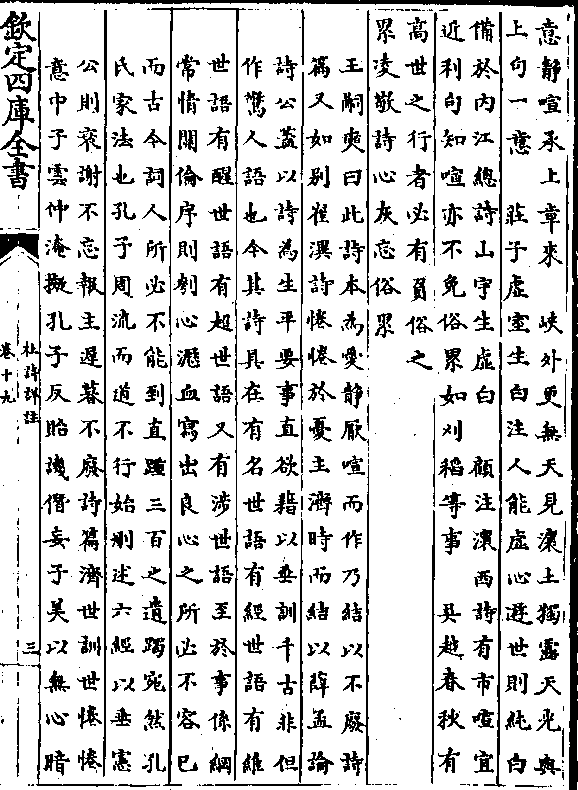 意静喧承上章來　峽外更無天見瀼上獨露天光與
上句一意　莊子虚室生白注人能虚心遊世則純白
備於内江總詩山宇生虚白　顧注瀼西詩有市喧宜
近利句知喧亦不免俗累如刈稻等事　吳越春秋有
高世之行者必有負俗之
累凌敬詩心灰忘俗累
王嗣奭曰此詩本為愛静厭喧而作乃結以不廢詩
篇又如别崔潩詩惓惓於憂主濟時而結以薛孟論
詩公蓋以詩為生平要事直欲藉以垂訓千古非但
作驚人語也今其詩具在有名世語有經世語有維
世語有醒世語有超世語又有涉世語至於事係綱
常情關倫序則刳心瀝血寫出良心之所必不容已
而古今詞人所必不能到直踵三百之遺躅宛然孔
氏家法也孔子周流而道不行始刪述六經以垂憲
公則衰謝不忘報主遲暮不廢詩篇濟世訓世惓惓
意中子雲仲淹擬孔子反貽譏僭妄子美以無心暗
欽定四庫全書
杜詩詳注
卷十九
三